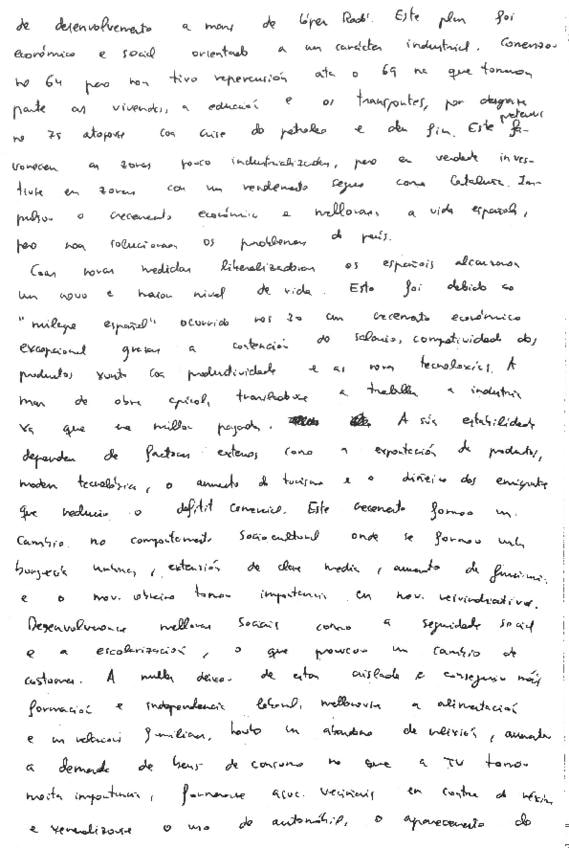 de desenvolvemento a mans de López Rodó. Este plan foi
económico e social orientado a un carácter industrial. Comenzou
no 64 pero non tivo repercusión ata o 69 na que tomaron
parte as vivendas, a educación e os transportes, por desgraza
no 75 atopouse coa crise do petroleo e deu fin. Este pretendeu fa-
vorecer as zonas pouco industrializadas, pero en verdade inves-
tiuse en zonas con un rendemento seguro como Cataluña. Im-
pulsou o crecemento económico e melloraron a vida española,
pero non solucionaron os problemas do país.
Coas novas medidas liberalizadoras os españois alcanzaron
un novo e maior nivel de vida. Esto foi debido ao
"milagre español" ocurrido nos 20 cun crecemento económico
excepcional grazas a contención do salario, competividade dos
produtos xunto coa productividade e as novas tecnoloxías. A
man de obra agrícola trasladouse a traballar a industria
xa que era mellor pagada. A súa estabilidade
dependeu de factores externos como a exportación de produtos,
modern tecnolóxica, o aumento do turismo e o diñeiro dos emigrantes
que reduciu o défitit comercial. Este crecemento formou un
cambio no comportamento sociocultural onde se formou unha
burguesía urbana, extensión de clase media, aumento de funcion.
e o mov. obreiro tomou importancia en mov. reivindicativos.
Desenvolveronse melloras sociais como a seguridade social
e a escolarización, o que provocou un cambio de
costumes. A muller deixou de estar aislada e conseguiu máis
formación e independencia laboral, mellorouse a alimentación
e as relacións familiares, houbo un abandono de relixión, aumentou
a demanda de bens de consumo no que a TV tomou
moita importancia, formaronse asoc. veciñais en contra do réxime
e xeneralizouse o uso do automóbil, o aparecemento do